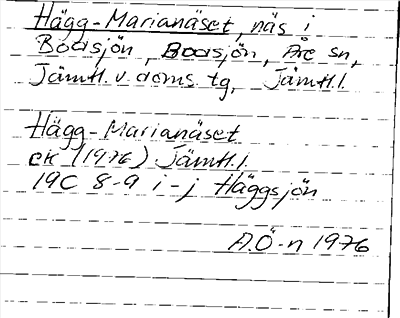 Hägg-Marianäset, näs i
Bodsjön, Bodsjön, Åre sn,
Jämtl. v. doms. tg, Jämtl.l.
Hägg-Marianäset
ek (1976) Jämtl.l.
19C 8-9 i-j Häggsjön
A.Ö-n 1976